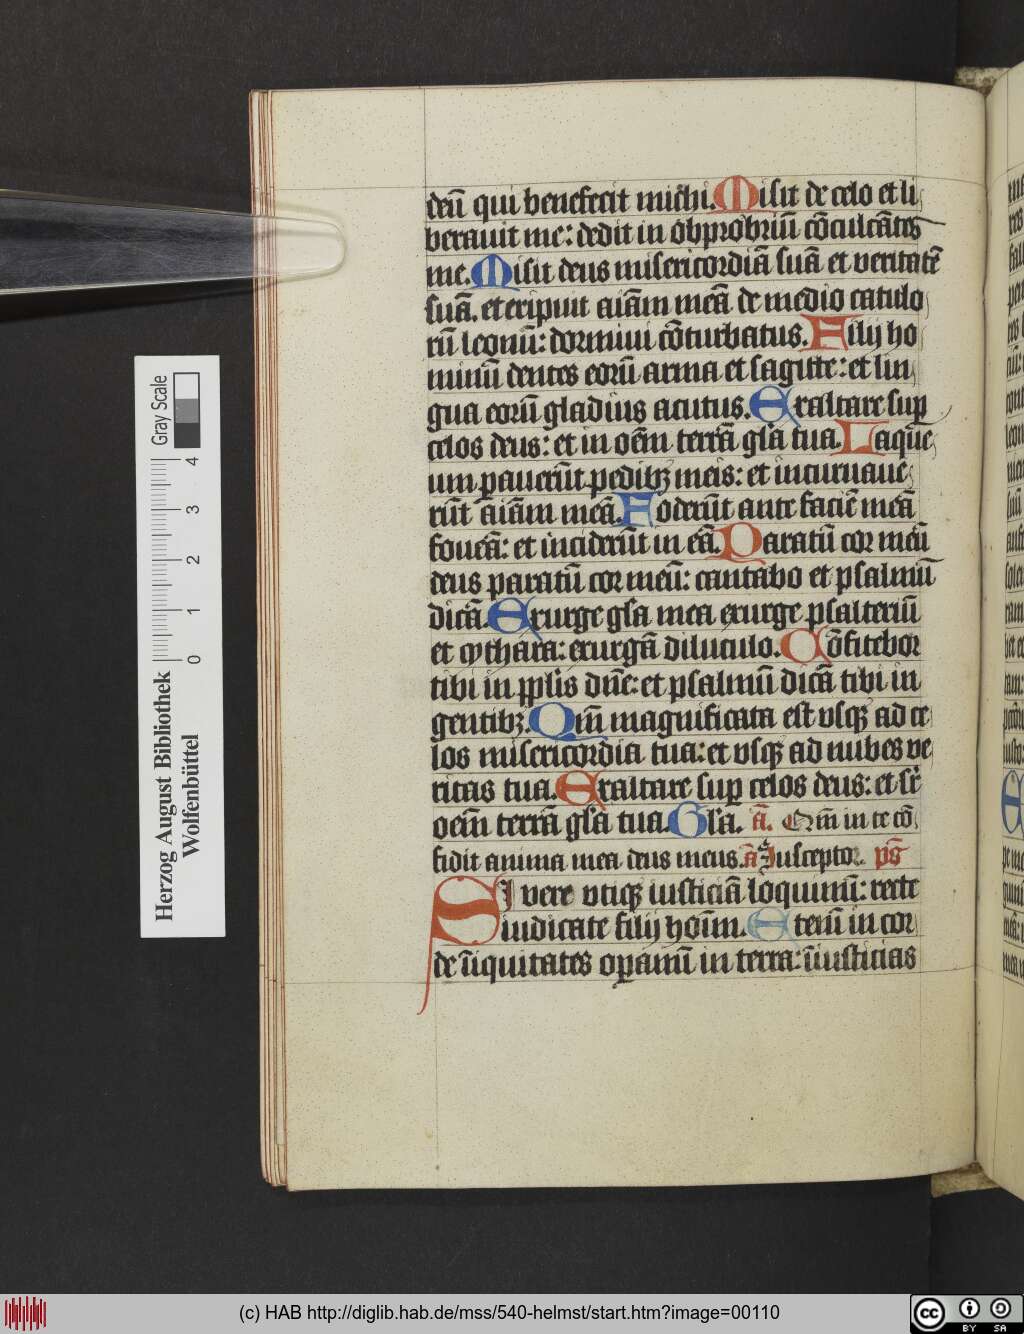 deū qui benefecit michi. Misit de celo et li
berauit me: dedit in obprobriū cōculcātes
me. Misit deus misericordiā suā et veritatē
suā. et eripuit aīam meā de medio catulo
rū leonū: dormiui cōturbatus. Filij ho
minū dentes eorū arma et sagitte: et lin
gua eorū gladius acutus. Exaltare suꝑ
celos deus: et in oēm terrā gl̄a tua. Laque
um ꝑauerūt pedibꝫ meis: et incuruaue
rūt aīam meā. Foderūt ante faciē meā
foueā: et inciderūt in eā. Paratū cor meū
deus paratū cor meū: cantabo et psalmū
dicā. Exurge gl̄a mea exurge psalteriū
et cythara: exurgā diluculo. Cōfitebor
tibi in ppl̄is dn̄e: et psalmū dicā tibi in
gentibꝫ. Qm̄ magnificata est vsqꝫ ad ce
los misericordia tua: et vsqꝫ ad nubes ve
ritas tua. Exaltare suꝑ celos deus: et sr̄
oēm terrā gl̄a tua. Gl̄a. a̅. Qm̄ in te cō
fidit anima mea deus meus. a̅ Susceptor. ps̄
SI vere vtiqꝫ iusticiā loquimī: recte
iudicate filij hoīm. Etenī in cor
de īiquitates oꝑamī in terra: īiusticias
Herzog August Bibliothek
Wolfenbüttel
0 1 2 3 4
Gray Scale
(c) HAB http://diglib.hab.de/mss/540-helmst/start.htm?image=00110
cc BY SA